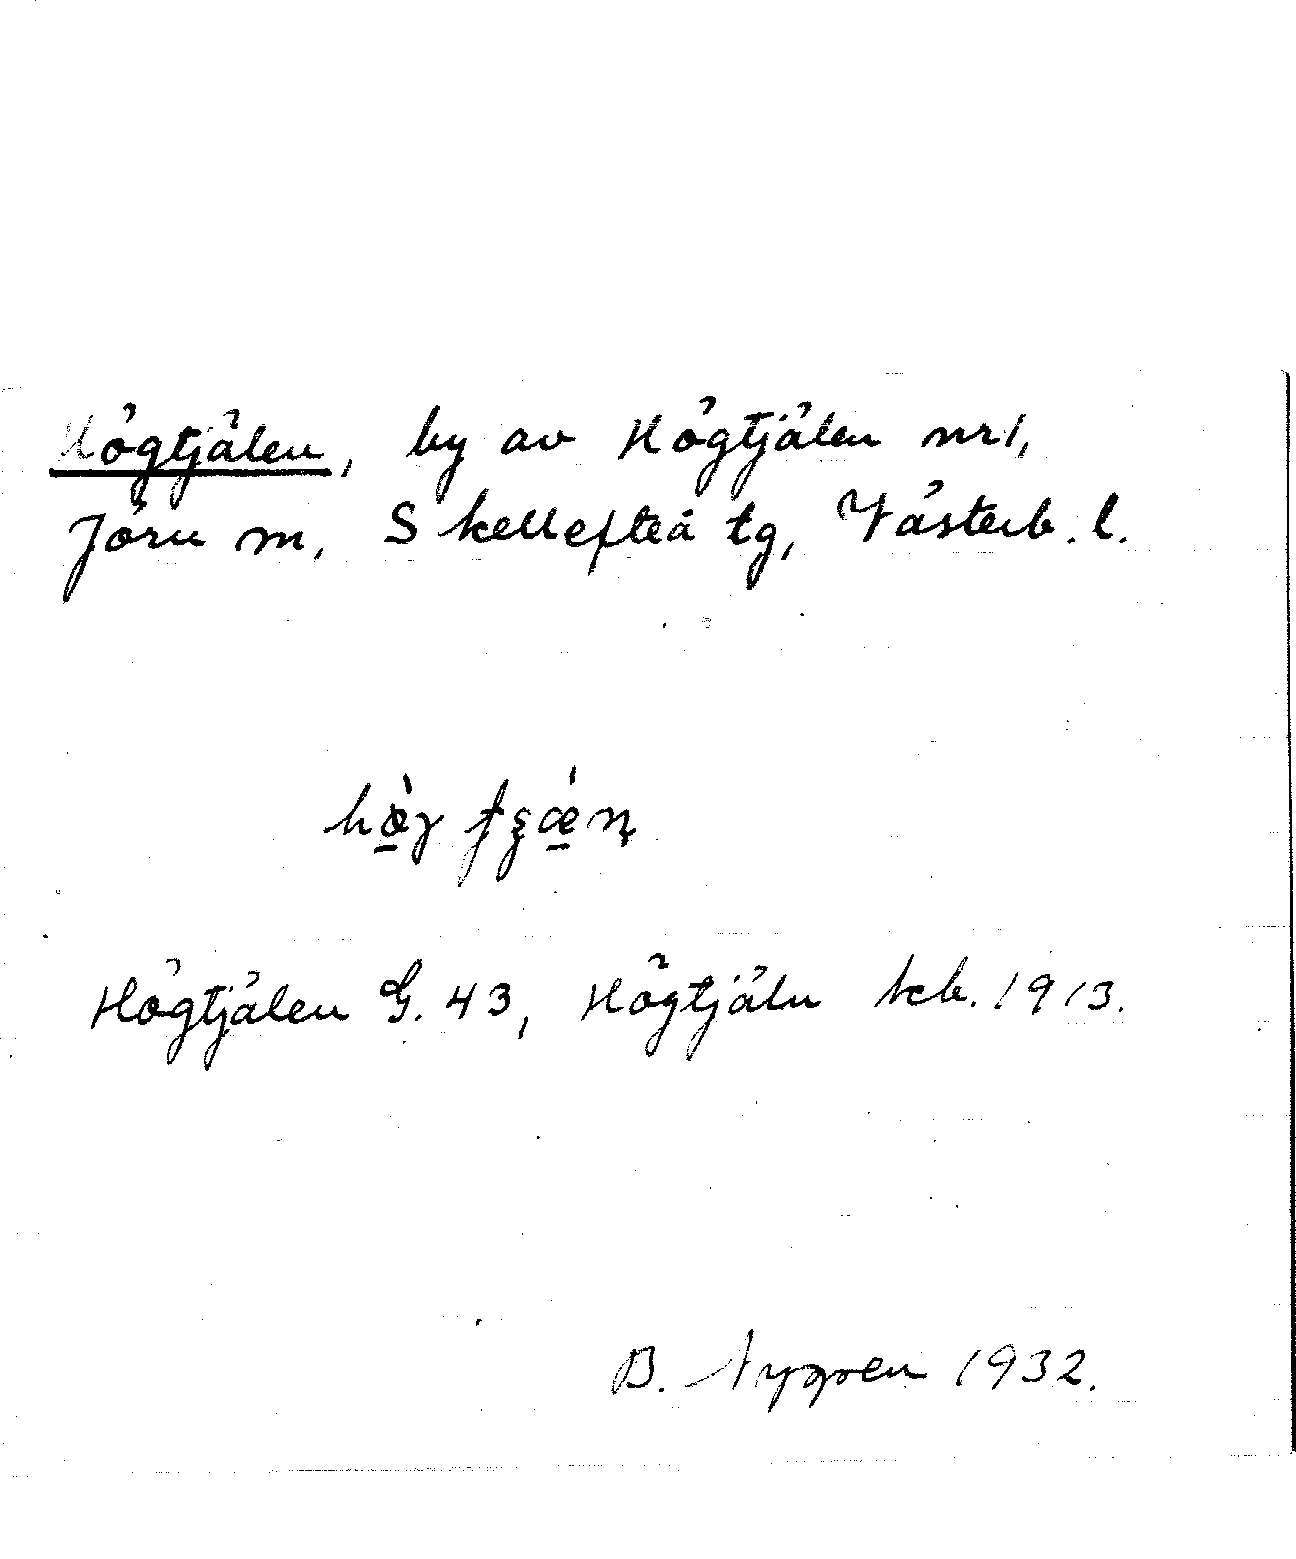 Högtjälen, by av Högtjälen nr 1,
Jörn sn, Skellefteå tg, Västerb. l.
Högtjälen G. 43, Högtjäln kb. 1913.
B. Nygren 1932.